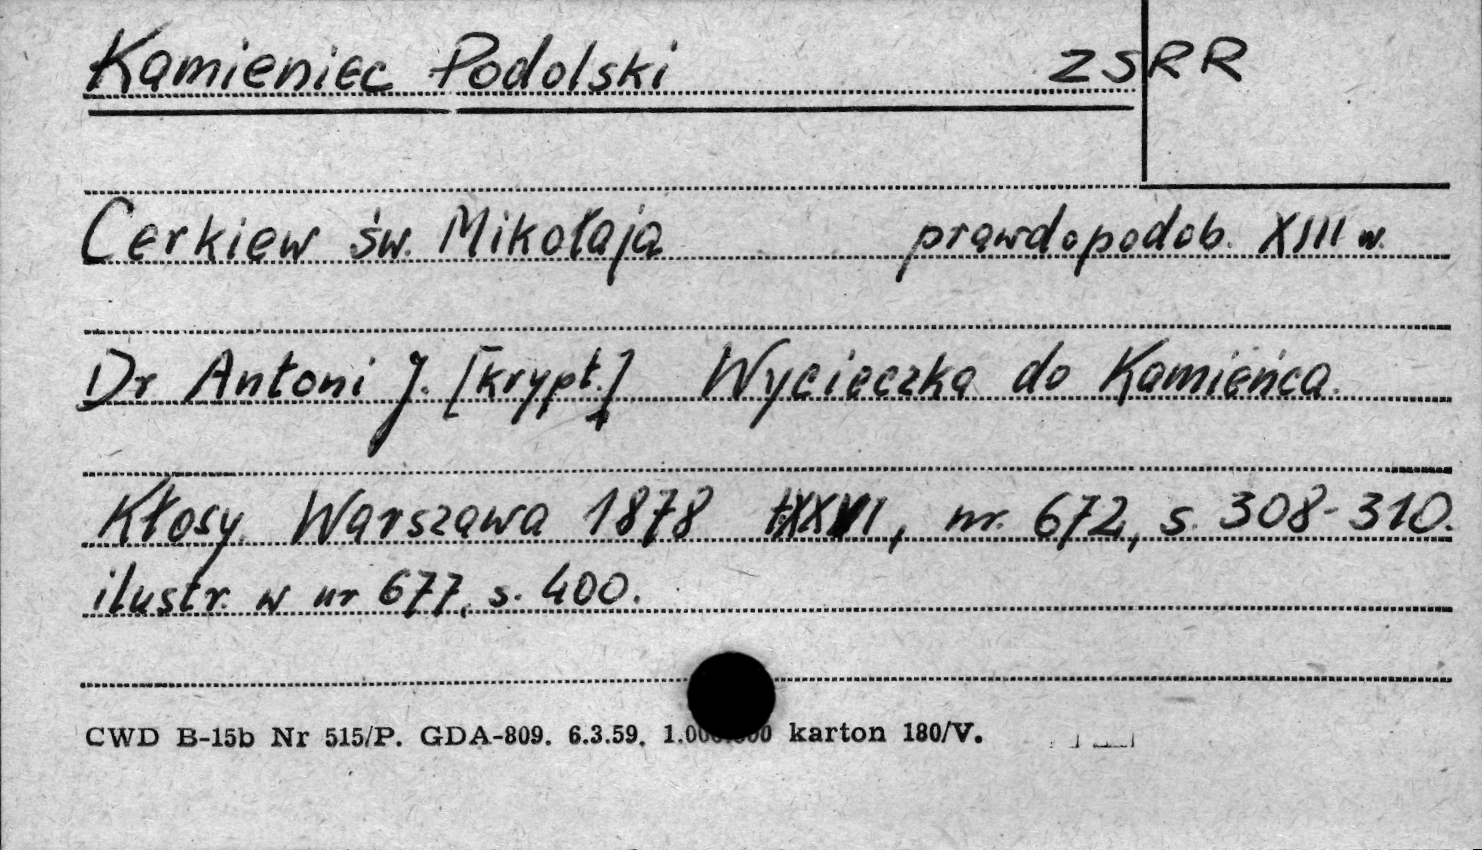 Kamieniec Podolski ZSRR
Cerkiew św. Mikołaja prawdopodob. XIII w.
Dr Antoni J. [krypt.] Wycieczka do Kamieńca.
Kłosy. Warszawa 1878 tXXVI, nr. 672, s. 308-310.
ilustr. w nr 677, s. 400.
CWD B-15b Nr 515/P. GDA-809. 6.3.59. karton 180/V.